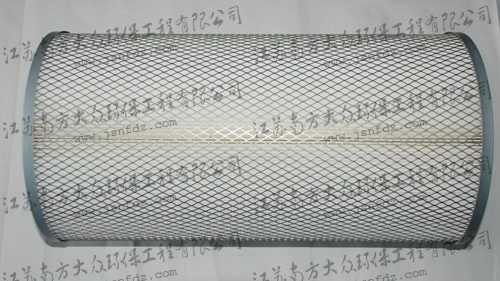 江苏南方大众环保工程有限公司
www.jsnfdz.com
江苏南方大众环保工程有限公司
www.jsnfdz.com
江苏南方大众环保工程有限公司
www.jsnfdz.com
江苏南方大众环保工程有限公司
www.jsnfdz.com
江苏南方大众环保工程有限公司
www.jsnfdz.com
江苏南方大众环保工程有限公司
www.jsnfdz.com
江苏南方大众环保工程有限公司
www.jsnfdz.com
江苏南方大众环保工程有限公司
www.jsnfdz.com